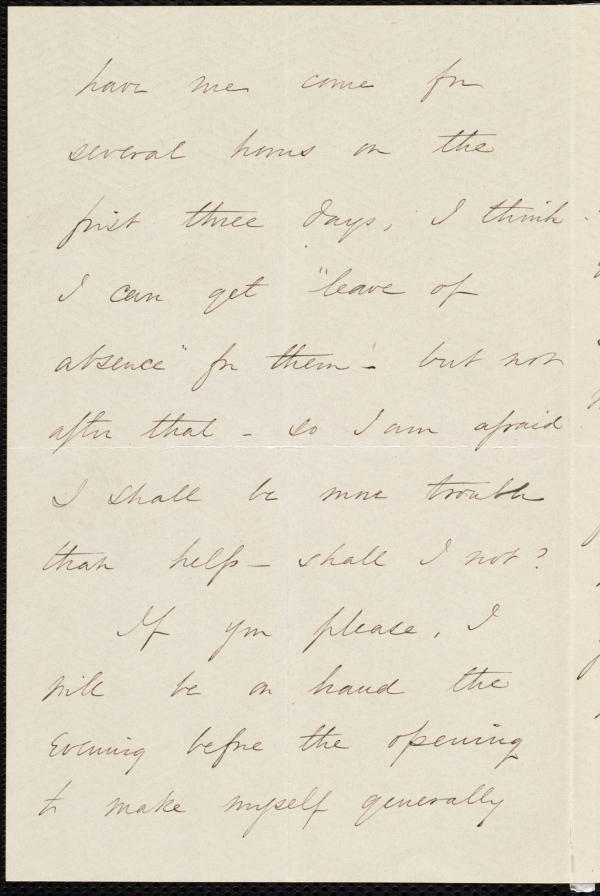 have me come for
several hours on the
first three days, I think
I can get "leave of
absence" for them - but not
after that - so I am afraid
I shall be more trouble
than help - shall I not?
If you please, I
will be on hand the
evening before the opening
to make myself generally